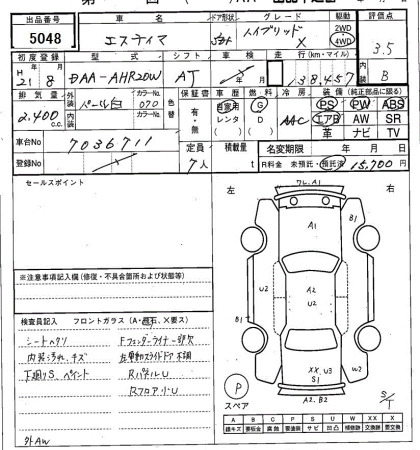 出品番号 車名 ドア形状 グレード 駆動 評価点
5048 エスティマ 5ドア ハイブリッド X 2WD 4WD 3.5
初度登録 型式 シフト 車検 走行(km・マイル) 内装
H21年 8月 DAA-AHR20W AT 年 月 138,457 B
排気量 外装 色 カラーNo. 色替 保証書 車歴 燃料 冷房 装備 (純正部品に限る)
2,400 c.c. パール白 070 有・無 自家用 レンタ G D AAC PS PW ABS
内装 色 カラーNo. エアB AW SR
革 ナビ TV
車台No 7036711 定員 積載量 名変期限 年 月 日
登録No 7人 t R料金 未預託・預託済 15,700円
セールスポイント 左 右
フレ.A1
A1
B1
A2
U2
U2
B1
XX U3
S1
W2
A2.B2
P
スペア
S/T
※注意事項記入欄(修復・不具合箇所および状態等)
検査員記入 フロントガラス(A・飛石、X要ス)
シートヘタリ Fフェンダーライナー一部欠
内装汚れ、キズ 左電動スライドドア不調
下廻りS、ペイント RパネルU
RフロアU
外AW
A B C P S U W XX X
線キズ 要板金 腐蝕 要塗装 サビ 凹凸 補修跡 交換跡 要交換